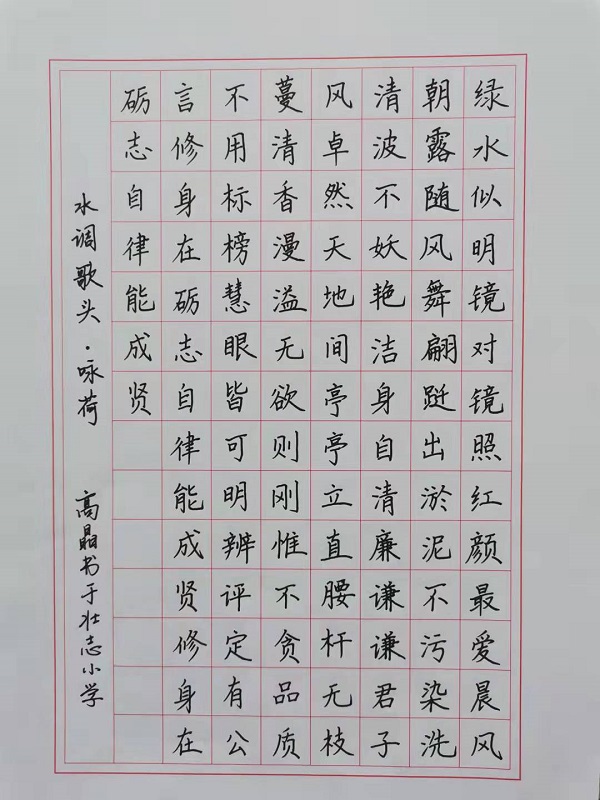 绿水似明镜对镜照红颜最爱晨风
朝露随风舞翩跹出淤泥不污染洗
清波不妖艳洁身自清廉谦谦君子
风卓然天地间亭亭立直腰杆无枝
蔓清香漫溢无欲则刚惟不贪品质
不用标榜慧眼皆可明辨评定有公
言修身在砺志自律能成贤修身在
砺志自律能成贤
水调歌头·咏荷 高晶书于壮志小学